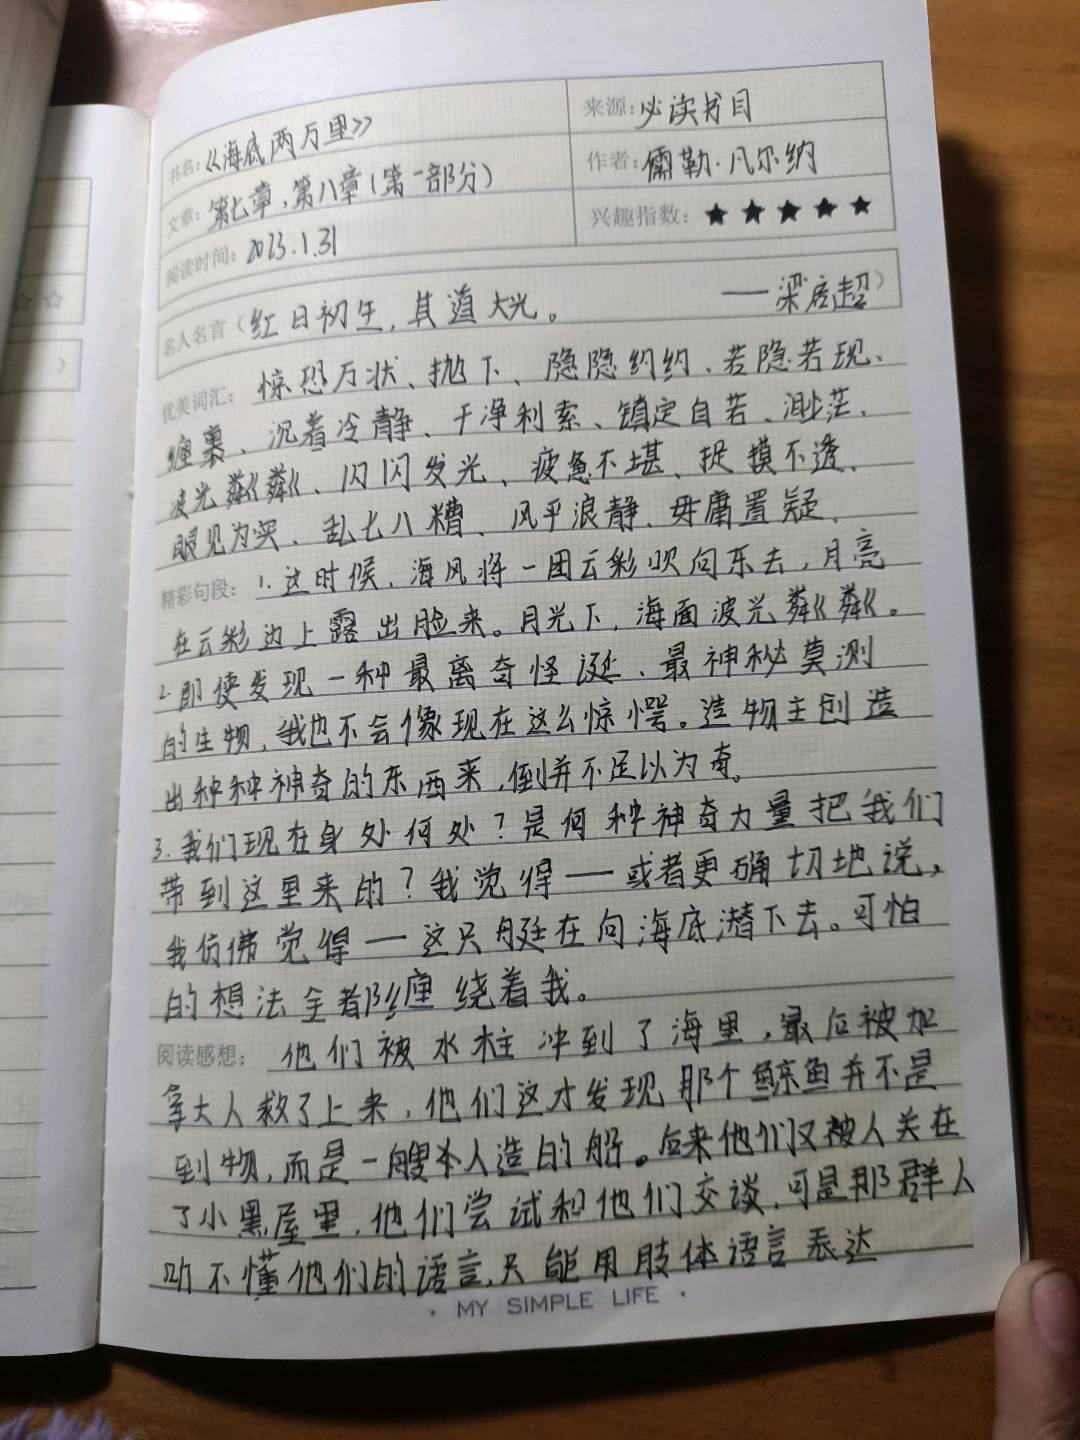 书名：《海底两万里》
来源：必读书目
文章：第七章、第八章(第一部分)
作者：儒勒·凡尔纳
阅读时间：2023.1.31
兴趣指数：★★★★★
名人名言（红日初生，其道大光。 ——梁启超）
优美词汇：惊恐万状、抛下、隐隐约约、若隐若现、
缠裹、沉着冷静、干净利索、镇定自若、渺茫、
波光粼粼、闪闪发光、疲惫不堪、捉摸不透、
眼见为实、乱七八糟、风平浪静、毋庸置疑、
精彩句段：1.这时候，海风将一团云彩吹向东去，月亮
在云彩边上露出脸来。月光下，海面波光粼粼。
2.即使发现一种最离奇怪诞、最神秘莫测
的生物，我也不会像现在这么惊愕。造物主创造
出种种神奇的东西来，倒并不足以为奇。
3.我们现在身处何处？是何种神奇力量把我们
带到这里来的？我觉得——或者更确切地说，
我仿佛觉得——这只艇在向海底潜下去。可怕
的想法全都 绕着我。
阅读感想：他们被水柱冲到了海里，最后被加
拿大人救了上来，他们这才发现那个鲸鱼并不是
到物，而是一艘 人造的船。后来他们又被人关在
了小黑屋里，他们尝试和他们交谈，可是那群人
听不懂他们的语言，只能用肢体语言表达
· MY SIMPLE LIFE ·